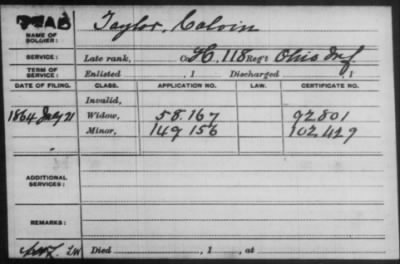 DEAD
NAME OF SOLDIER: Taylor, Calvin
SERVICE: Late rank, Co H. 118 Reg't Ohio Inf
TERM OF SERVICE: Enlisted , 1 Discharged , 1
DATE OF FILING. CLASS. APPLICATION NO. LAW. CERTIFICATE NO.
Invalid,
1864 July 21 Widow, 58.167 92.801
Minor, 149 156 102.429
ADDITIONAL SERVICES:
REMARKS:
Died , 1 , at